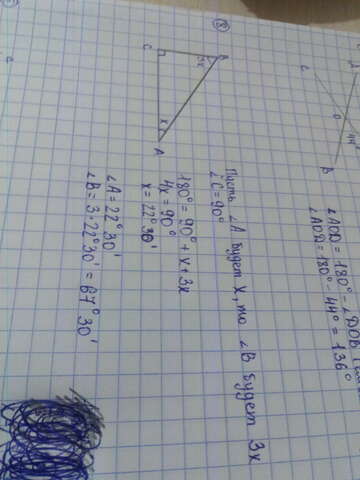 A
C
O
B
44°
∠AOD = 180° - ∠DOB
∠AOD = 180° - 44° = 136°
8
C
B
3x
x
A
Пусть ∠A будет x, то ∠B будет 3x
∠C = 90°
180° = 90° + x + 3x
4x = 90°
x = 22° 30'
∠A = 22° 30'
∠B = 3 · 22° 30' = 67° 30'